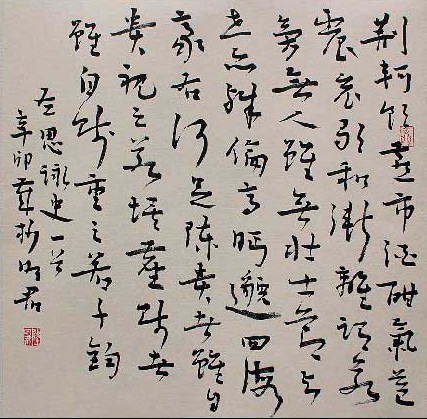 荆軻飲燕市酒酣氣益
震哀歌和漸離謂若
旁無人雖無壮士節與
世亦殊倫高眄邈四海
豪右何足陳貴者雖自
貴視之若埃塵賤者
雖自賤重之若千鈞
左思詠史一首
辛卯